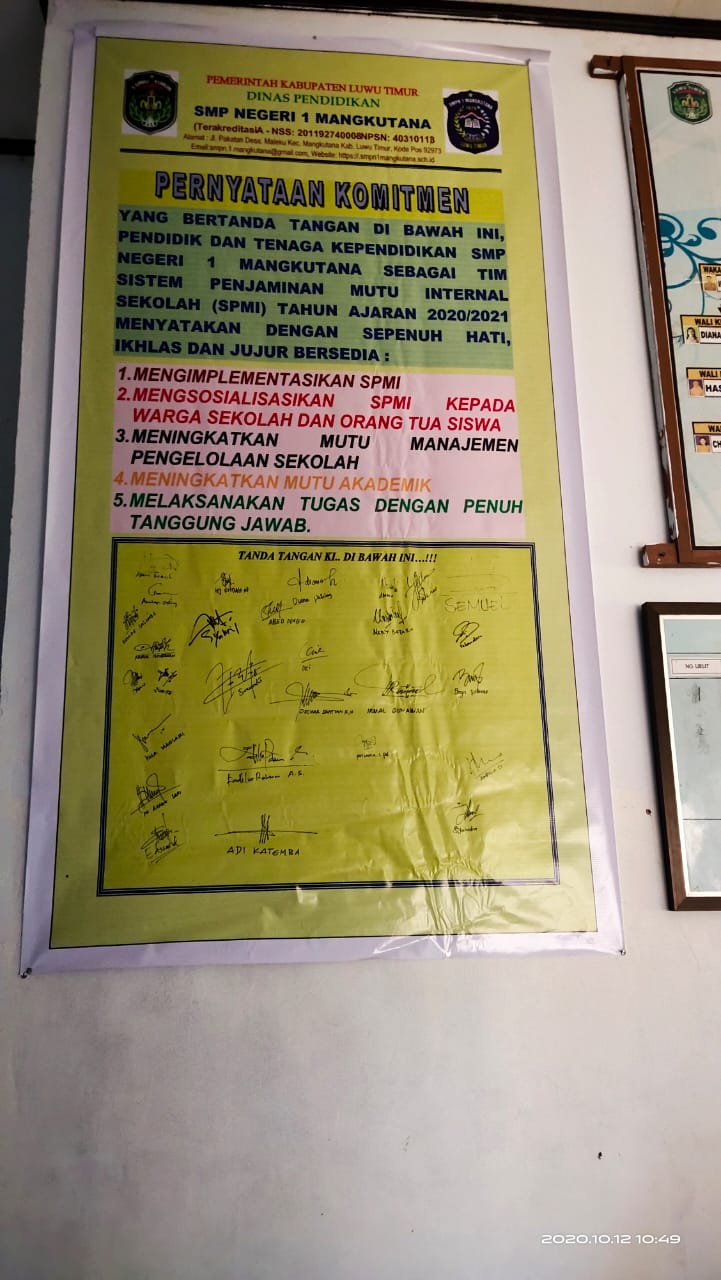 PEMERINTAH KABUPATEN LUWU TIMUR
DINAS PENDIDIKAN
SMP NEGERI 1 MANGKUTANA
(TerakreditasiA - NSS: 201192740008NPSN: 40310113)
Alamat : Jl. Pakatan Desa. Maleku Kec. Mangkutana Kab. Luwu Timur, Kode Pos 92973
Email:smpn.1.mangkutana@gmail.com, Website: https://smpn1mangkutana.sch.id
PERNYATAAN KOMITMEN
YANG BERTANDA TANGAN DI BAWAH INI,
PENDIDIK DAN TENAGA KEPENDIDIKAN SMP
NEGERI 1 MANGKUTANA SEBAGAI TIM
SISTEM PENJAMINAN MUTU INTERNAL
SEKOLAH (SPMI) TAHUN AJARAN 2020/2021
MENYATAKAN DENGAN SEPENUH HATI,
IKHLAS DAN JUJUR BERSEDIA :
1.MENGIMPLEMENTASIKAN SPMI
2.MENGSOSIALISASIKAN SPMI KEPADA
WARGA SEKOLAH DAN ORANG TUA SISWA
3.MENINGKATKAN MUTU MANAJEMEN
PENGELOLAAN SEKOLAH
4.MENINGKATKAN MUTU AKADEMIK
5.MELAKSANAKAN TUGAS DENGAN PENUH
TANGGUNG JAWAB.
TANDA TANGAN KI.. DI BAWAH INI...!!!
SEMUEL
ADI KATEMBA
WAKA
WALI K
DIANA
WALI
HAS
WA
CH
NO URUT
2020.10.12 10:49